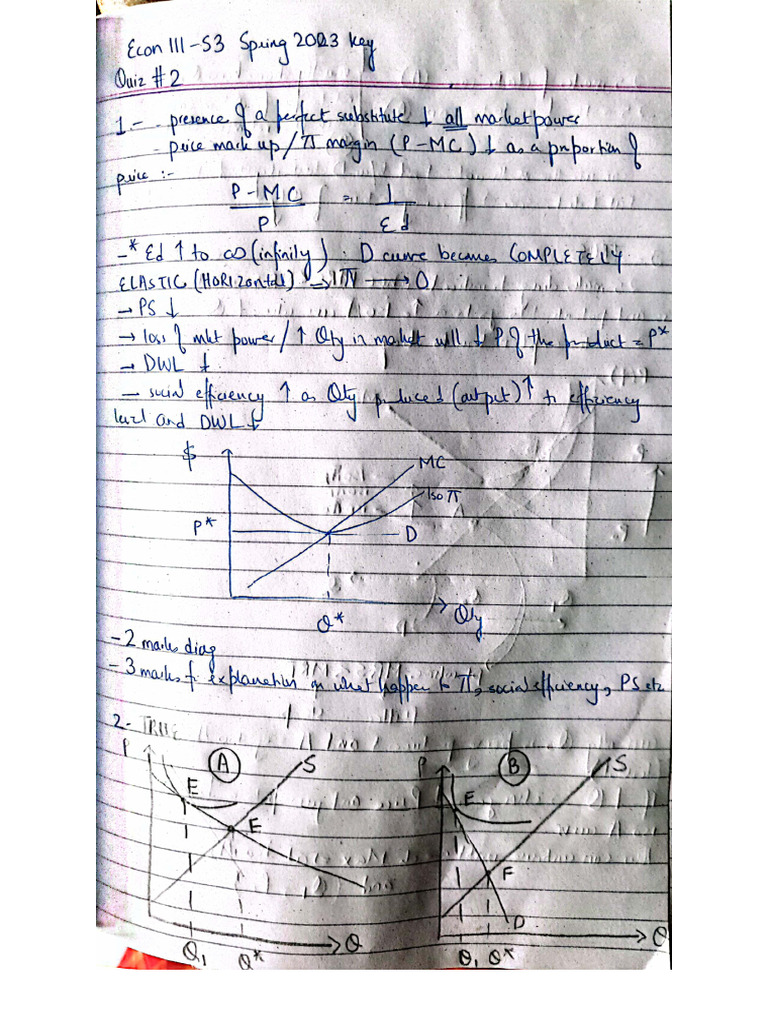 Econ 111-S3 Spring 2023 Key
Quiz #2
1.- - presence of a perfect substitute ↓ all market power
- price mark up/π margin (P-MC) ↓ as a proportion of
price :-
P-MC / P = 1 / Ed
-* Ed ↑ to ∞ (infinity). D curve becomes COMPLETELY
ELASTIC (HORIZontal) → π → 0
→ PS ↓
→ loss of mkt power/ ↑ Qty in market will ↓ P of the product = P*
→ DWL ↓
- social efficiency ↑ as Qty produced (output) ↑ to efficiency
level and DWL ↓
$
MC
Iso π
P*
D
Q*
Qty
- 2 marks diag
- 3 marks for explanation on what happen to π, social efficiency, PS etc
2- TRUE
P
A
S
E
E
Q1
Q*
Q
P
B
S
E
F
D
Q1
Q*
Q